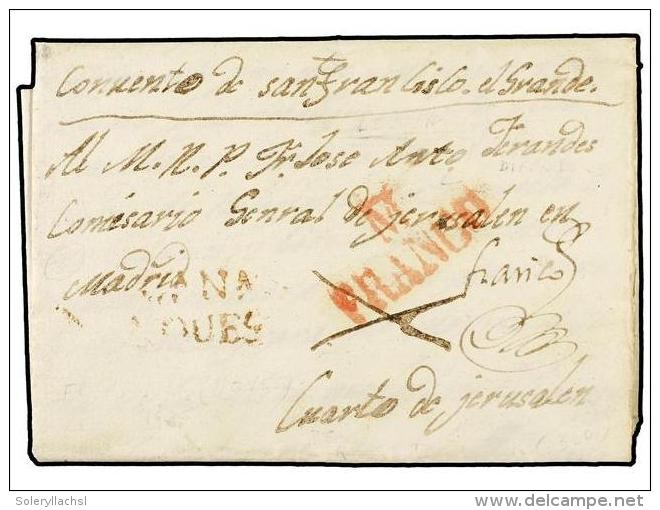 Convento de san Francisco. el Grande.
Al M. R. P. Fr. Jose Anto. Ferandes
Comisario Genral de jerusalen en
Madrid
franco
FRANCO
Cuarto de jerusalen
Soleryllachsl
www.delcampe.net